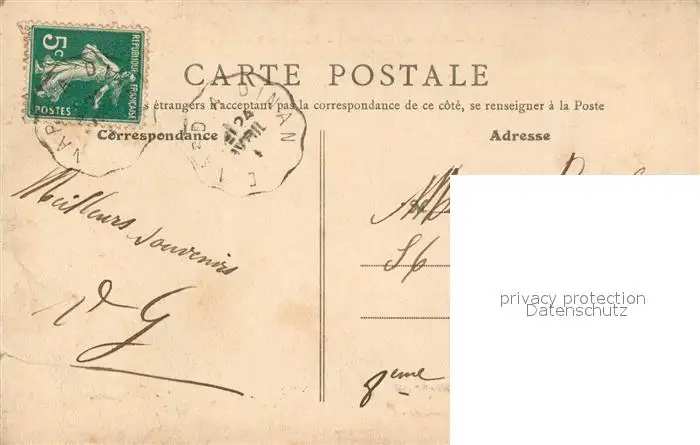 5c
RÉPUBLIQUE FRANÇAISE
POSTES
CARTE POSTALE
s étrangers n'acceptant pas la correspondance de ce côté, se renseigner à la Poste
Correspondance
Adresse
DINAN
24
AVRIL
Meilleurs
Souvenirs
G
56
8eme
privacy protection
Datenschutz